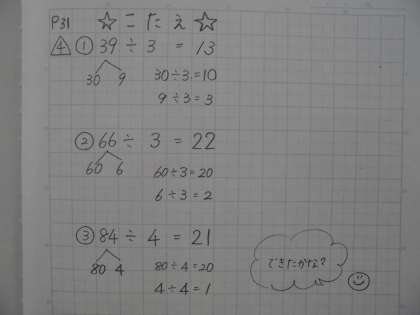 P31 ☆こたえ☆
4 ① 39 ÷ 3 = 13
30 9 30÷3=10
9÷3=3
② 66 ÷ 3 = 22
60 6 60÷3=20
6÷3=2
③ 84 ÷ 4 = 21
80 4 80÷4=20
4÷4=1
できたかな?